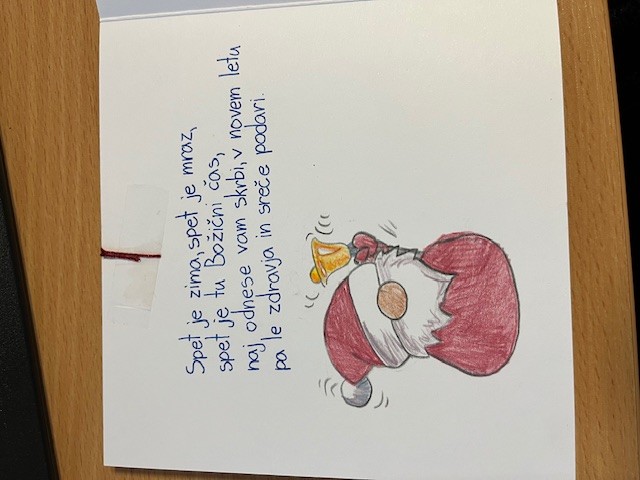 Spet je zima, spet je mraz,
spet je tu Božični čas,
naj odnese vam skrbi, v novem letu
pa le zdravja in sreče podari.